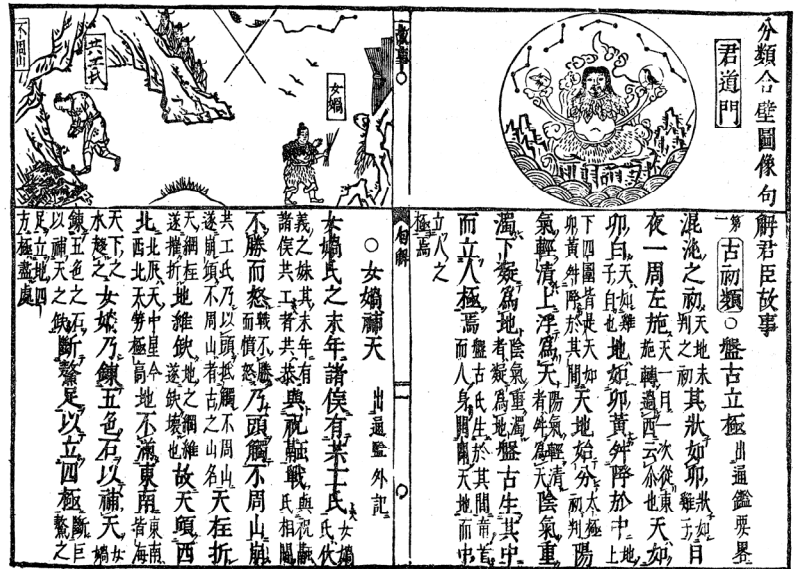 分類合璧圖像句解君臣故事
君道門
第一 古初類 ○盤古立極 出通鑑要畧
混沌之初 天地未判之初 其狀如卵 狀如雞子 日
夜一周左施 天一日一次從東施轉過西云尒也 天如
卵白 天如雞子白也 地如卵黃舛降於中上 地如
卵黃舛降於其間 下四圍皆是天 天地始分 太極初判 陽
氣輕清上浮為天 陽氣輕清者舛為天 陰氣重
濁下凝為地 陰氣重濁者凝為地 盤古生其中
而立人極焉 盤古氏生於其間 首而人身開闢天地而中
立人之極焉
故事
句解
女媧
共工氏
不周山
○女媧補天 出通鑑外記
女媧氏之末年諸侯有共工氏 女媧氏伏
羲之妹其末年有諸侯共工者共恭 與祝融戰 與祝融氏相鬭
不勝而怒 戰不勝而憤怒 乃頭觸不周山崩
共工氏乃以頭抵觸不周山遂崩頹不周山者古之山名 天柱折
天網柱遂摧折 地維缺 地之綱維遂缺壞也 故天傾西
北 北辰天中星今西北太勞極高 地不滿東南 東南皆海
天下之水趍之 女媧乃鍊五色石以補天 女媧
鍊五色之石以補天之缺 斷鰲足以立四極 斷巨鰲之
足立地四方極盡處